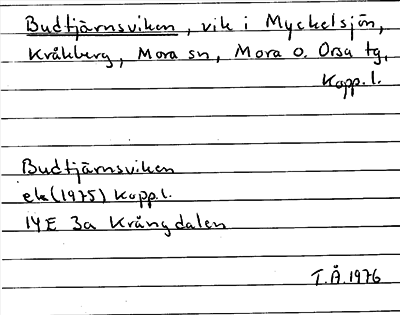 Budtjärnsviken, vik i Myckelsjön,
Kråkberg, Mora sn, Mora o. Orsa tg,
Kopp.l.
Budtjärnsviken
ek (1975) Kopp.l.
14E 3a Krångdalen
T.Å.1976